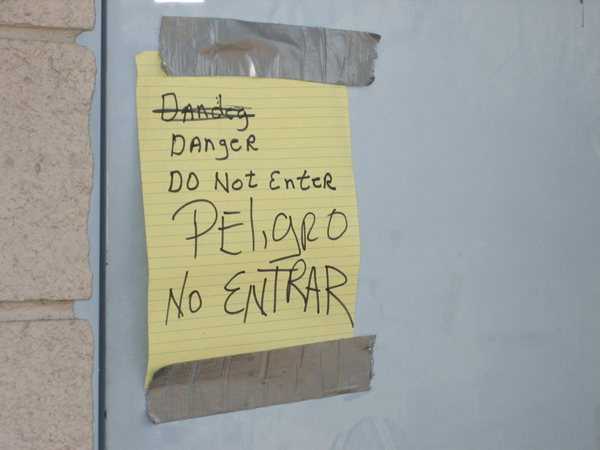 Dandeg
DAngeR
DO Not EnteR
PEligRO
NO ENTRAR